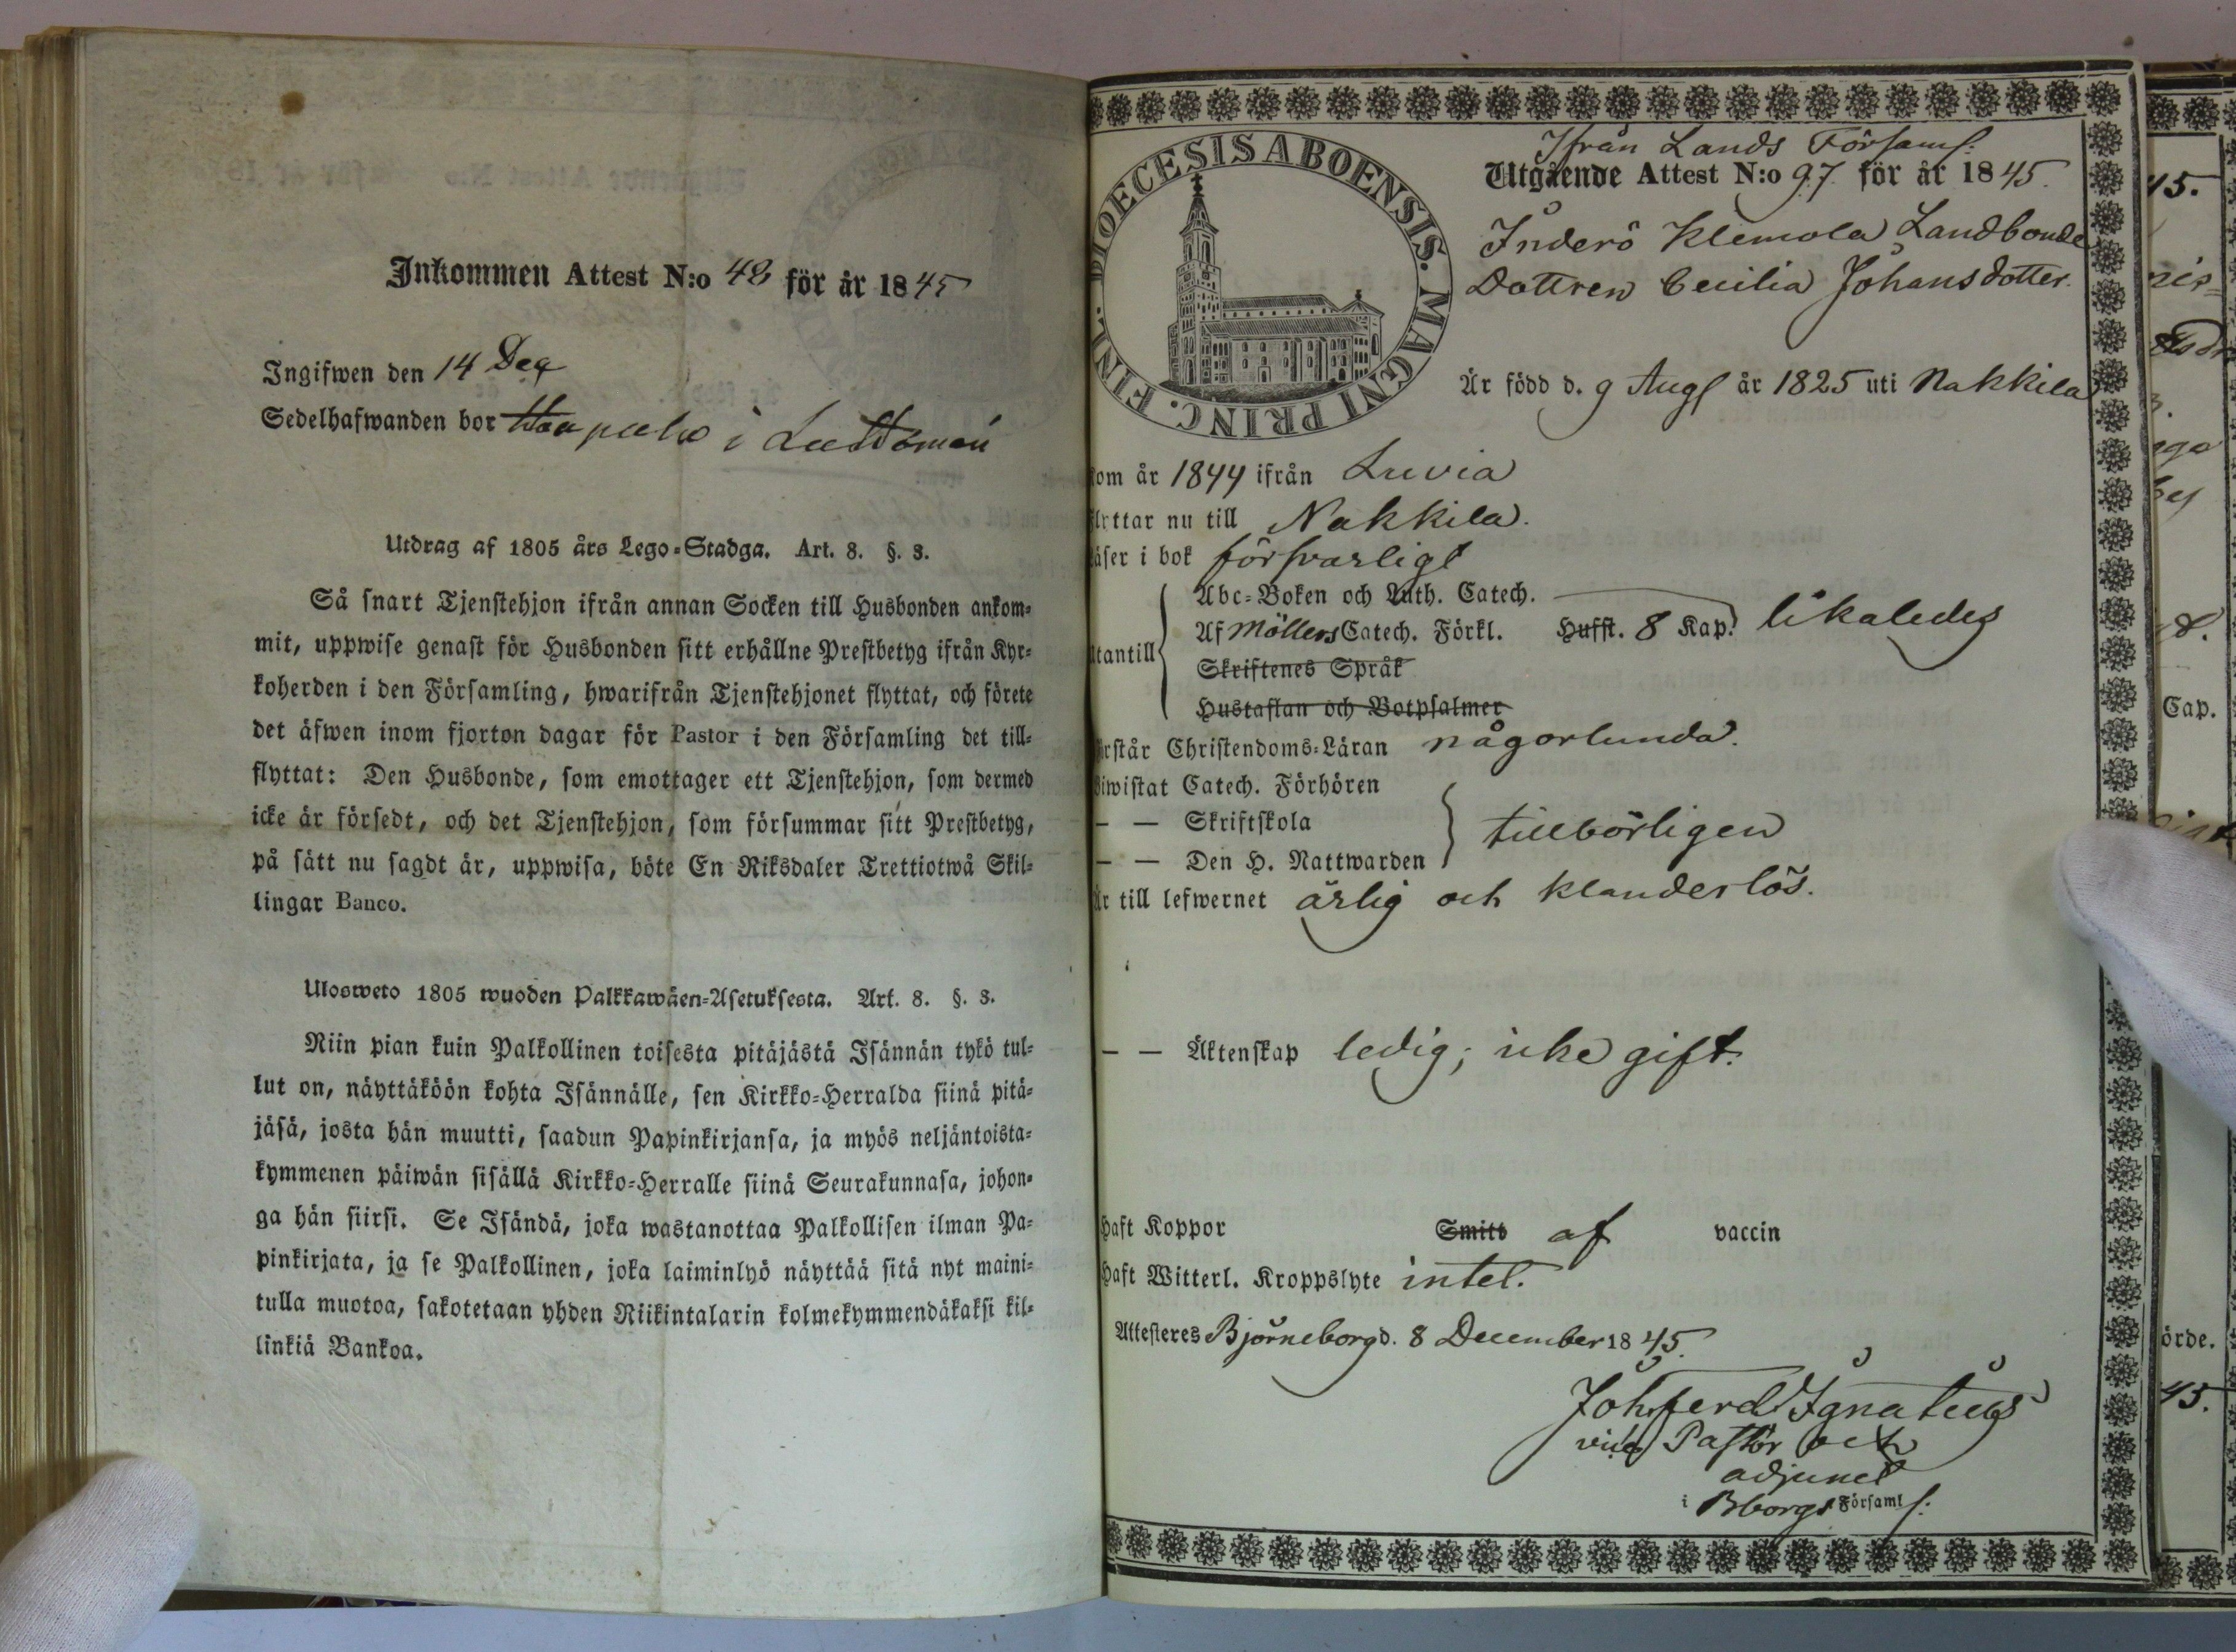 Inkommen Attest N:o 48 för år 1845
Ingifwen den 14 Dec
Sedelhafwanden bor i
Utdrag af 1805 års Lego-Stadga. Art. 8. §. 3.
Så snart Tjenstehjon ifrån annan Socken till Husbonden ankom-
mit, uppwise genast för Husbonden sitt erhållne Prestbetyg ifrån Kyr-
koherden i den Församling, hwarifrån Tjenstehjonet flyttat, och förete
det äfwen inom fjorton dagar för Pastor i den Församling det till-
flyttat: Den Husbonde, som emottager ett Tjenstehjon, som dermed
icke är försedt, och det Tjenstehjon, som försummar sitt Prestbetyg,
på sätt nu sagdt är, uppwisa, böte En Riksdaler Trettiotwå Skil-
lingar Banco.
Ulosweto 1805 wuoden Palkkawäen-Asetuksesta. Art. 8. §. 3.
Niin pian kuin Palkollinen toisesta pitäjästä Isännän tykö tul-
lut on, näyttäköön kohta Isännälle, sen Kirkko-Herralda siinä pitä-
jäsä, josta hän muutti, saadun Papinkirjansa, ja myös neljäntoista-
kymmenen päiwän sisällä Kirkko-Herralle siinä Seurakunnasa, johon-
ga hän siirsi. Se Isändä, joka wastanottaa Palkollisen ilman Pa-
pinkirjata, ja se Palkollinen, joka laiminlyö näyttää sitä nyt maini-
tulla muotoa, sakotetaan yhden Riikintalarin kolmekymmendäkaksi kil-
linkiä Bankoa.
DIOECESIS ABOENSIS. MAGNI PRINC. FINL.
Ifrån Lands Församl:
Utgående Attest N:o 97 för år 1845.
Inderö Klemola Landbonde
Dottren Cecilia Johansdotter.
Är född d. 9 Aug år 1825 uti Nakkila
kom år 1844 ifrån Luvia
flyttar nu till Nakkila.
läser i bok försvarligt
Abc-Boken och Luth. Catech.
Utantill Af Möllers Catech. Förkl. Hufst. 8 Kap. likaledes
Skriftenes Språk
Hustaflan och Botpsalmer
Förstår Christendoms-Läran någorlunda.
Biwistat Catech. Förhören
— — Skriftskola tillbörligen
— — Den H. Nattwarden
Är till lefwernet ärlig och klanderlös.
— — Äktenskap ledig; icke gift.
Haft Koppor Smitt af vaccin
Haft Witterl. Kroppslyte intet.
Attesteres Björneborg d. 8 December 1845.
Joh. Ferd. Ignatius
vice Pastor och
adjunct
i Bborgs Församl:
45.
Cap.
örde.
45.